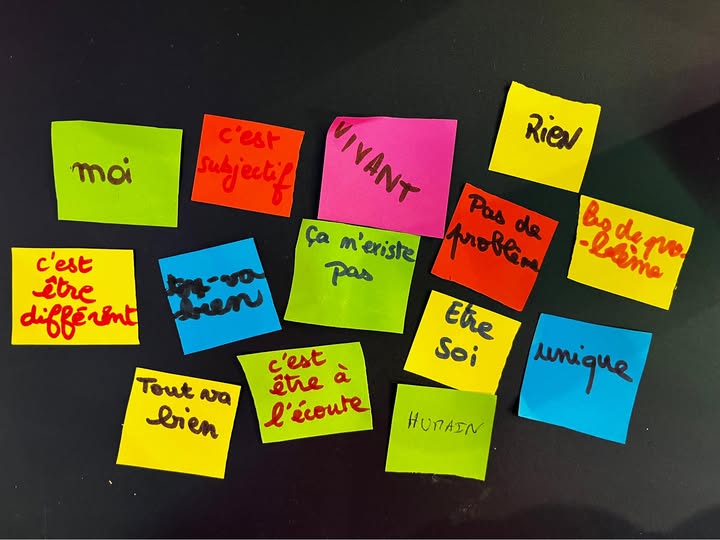 moi
c'est
subjectif
VIVANT
Rien
Pas de
problème
Pas de pro-
-blème
c'est
être
différent
bien
Ça n'existe
pas
Etre
Soi
unique
Tout va
bien
c'est
être à
l'écoute
HUMAIN